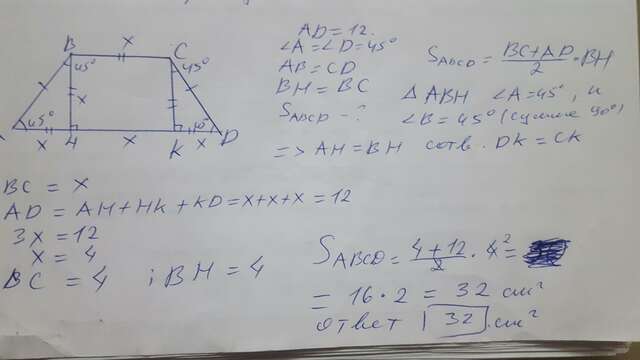 B x C
45° 45°
x
A 45° x H x K 45° x D
AD = 12.
∠A = ∠D = 45°
AB = CD
BH = BC
S_ABCD - ?
S_ABCD = (BC+AD)/2 · BH
△ ABH ∠A = 45°, и
∠B = 45° (сумме 90°)
=> AH = BH соотв. DK = CK
BC = x
AD = AH + HK + KD = x + x + x = 12
3x = 12
x = 4
BC = 4 ; BH = 4
S_ABCD = (4+12)/2 · 4² =
= 16 · 2 = 32 см²
ответ 32 см²